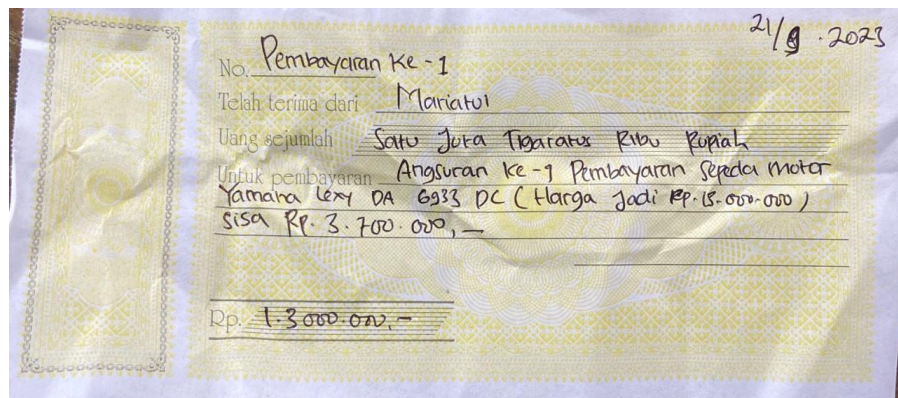 21/9.2023
No. Pembayaran Ke-1
Telah terima dari Mariatul
Uang sejumlah Satu Juta Tigaratus Ribu Rupiah
Untuk pembayaran Angsuran Ke-1 Pembayaran Sepeda motor
Yamaha Lexy DA 6933 DC (Harga Jadi Rp. 15.000.000)
sisa Rp. 3.700.000,-
Rp. 1.3000.000.-